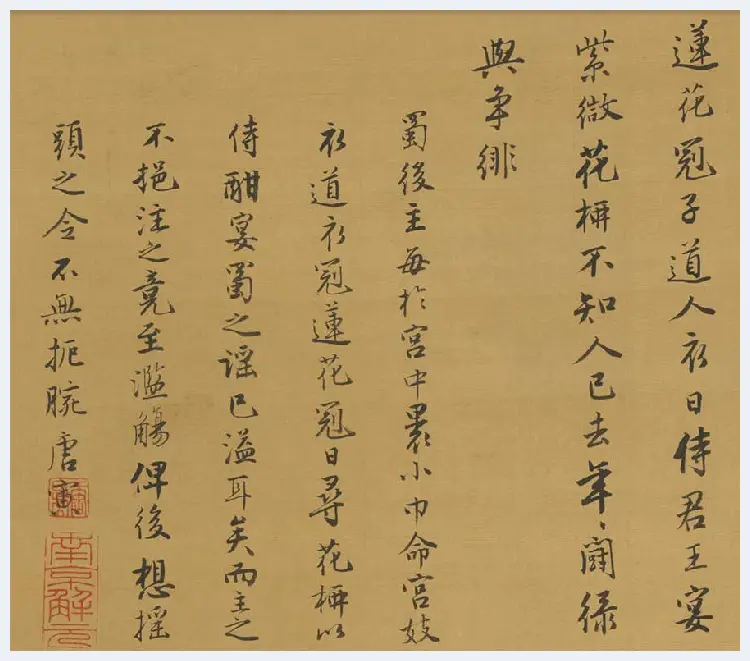 蓮花冠子道人衣日侍君王宴
紫微花柳不知人已去年年鬬綠
與爭緋
蜀後主每於宮中裹小巾命宮妓
衣道衣冠蓮花冠日尋花柳以
侍酣宴蜀之謡已溢耳矣而主之
不挹注之竟至濫觴俾後想搖
頭之令不無扼腕唐寅
南京解元